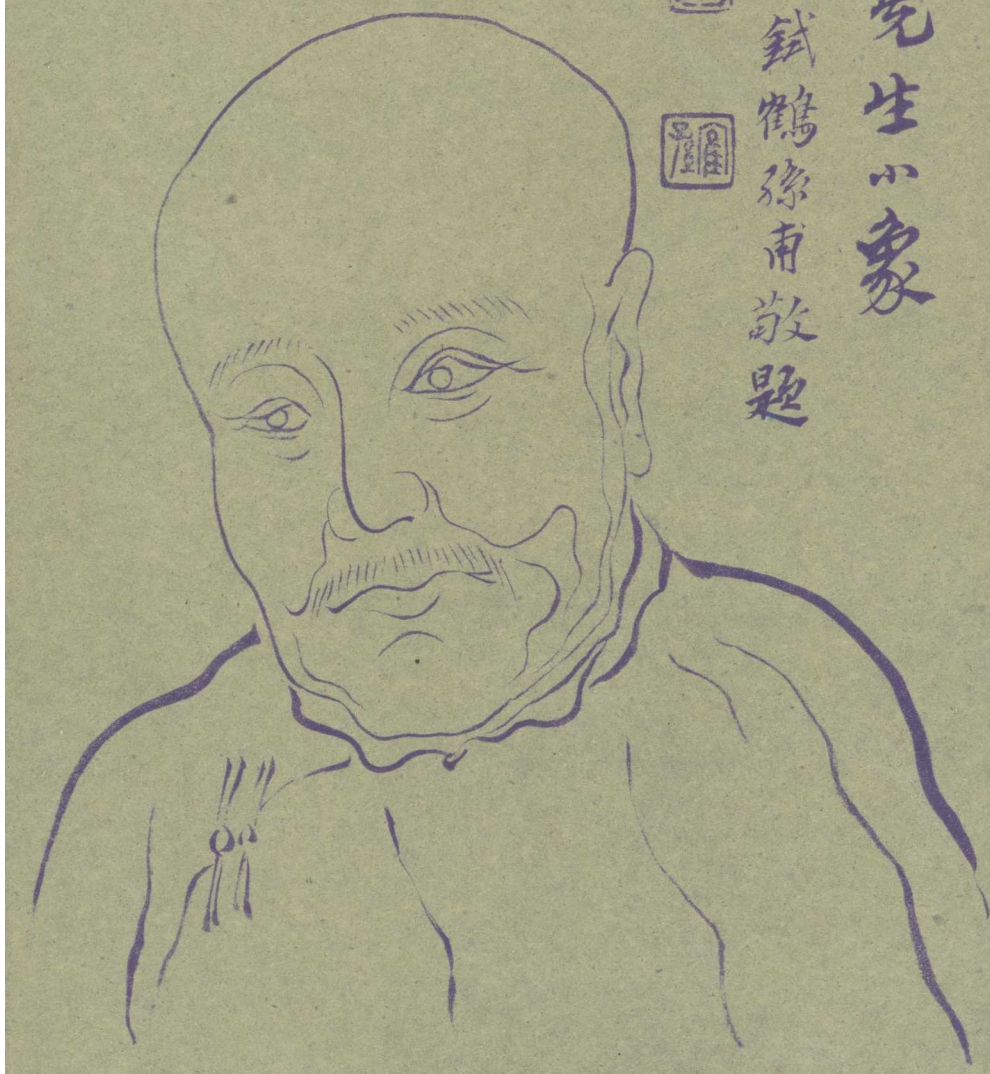 先生小象
鉽鶴孫甫敬題